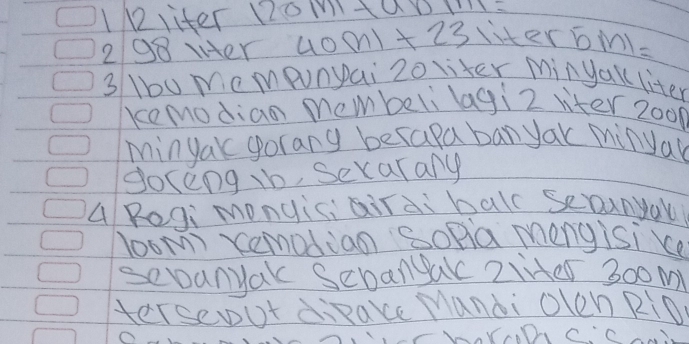 1 12 liter 120 ml +
2 98 liter 40 ml + 23 liter 5 ml =
3 Ibu mempunyai 20 liter minyak liter
kemodian membeli lagi 2 liter 200
minyak gorang berapa banyak minyak
goreng ib, sekarang
4 Regi mengisi air di bak sebanyak
100ml kemodian Sopia mengisi ke
sebanyak sebanyak 2 liter 300 m
tersebut dipake Mandi olen Rin